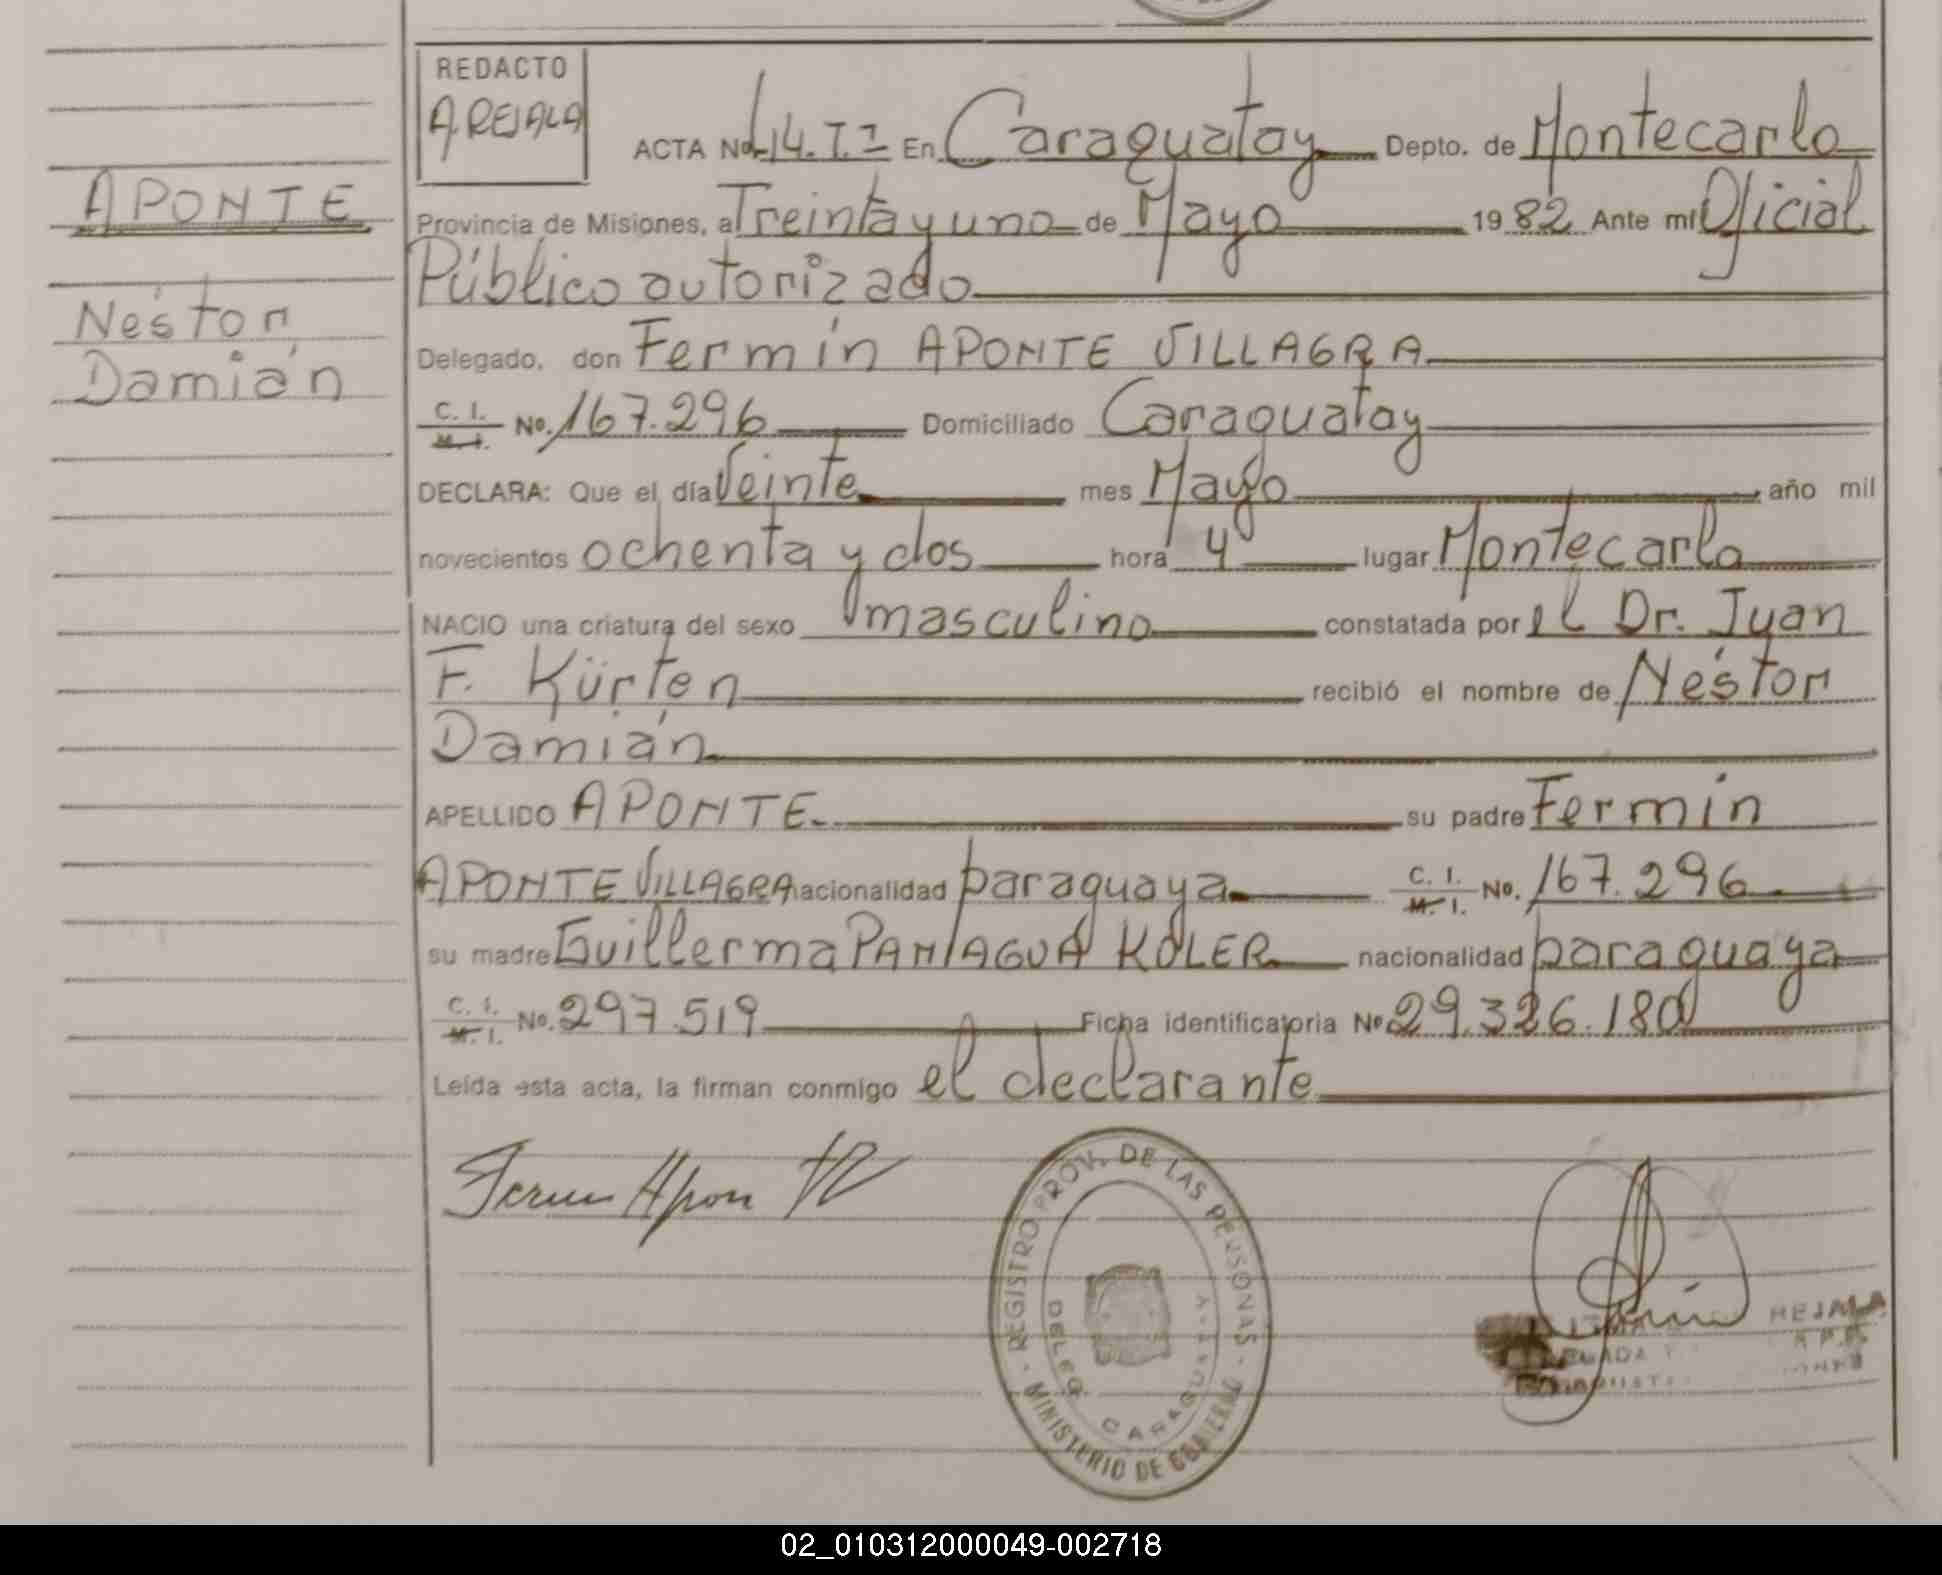 REDACTO
AREJALA
ACTA No. 14. T. I En Caraguatay Depto. de Montecarlo
APONTE
Provincia de Misiones, a Treinta y uno de Mayo 1982 Ante mí Oficial
Público autorizado
Néstor
Damián
Delegado, don Fermín APONTE VILLAGRA
C. I. M. I. No. 167.296 Domiciliado Caraguatay
DECLARA: Que el día Veinte mes Mayo año mil
novecientos ochenta y dos hora 4 lugar Montecarlo
NACIO una criatura del sexo masculino constatada por el Dr. Juan
F. Kürten recibió el nombre de Néstor
Damián
APELLIDO APONTE su padre Fermín
APONTE VILLAGRA nacionalidad paraguaya C. I. M. I. No. 167.296
su madre Guillerma PANIAGUA KOLER nacionalidad paraguaya
C. I. M. I. No. 297.519 Ficha identificatoria No 29.326.180
Leída esta acta, la firman conmigo el declarante
REGISTRO PROV. DE LAS PERSONAS
MINISTERIO DE GOBIERNO
DELEG. CARAGUATAY
REJALA
02_010312000049-002718